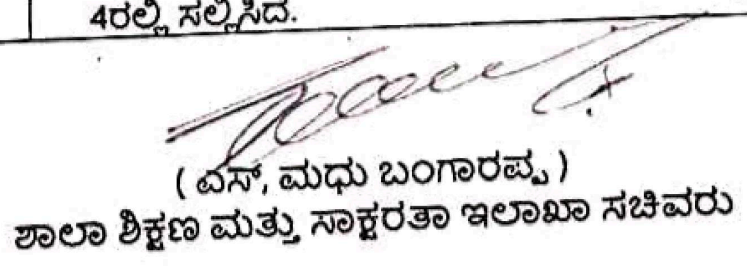 4ರಲ್ಲಿ ಸಲ್ಲಿಸಿದೆ.
( ಎಸ್, ಮಧು ಬಂಗಾರಪ್ಪ )
ಶಾಲಾ ಶಿಕ್ಷಣ ಮತ್ತು ಸಾಕ್ಷರತಾ ಇಲಾಖಾ ಸಚಿವರು